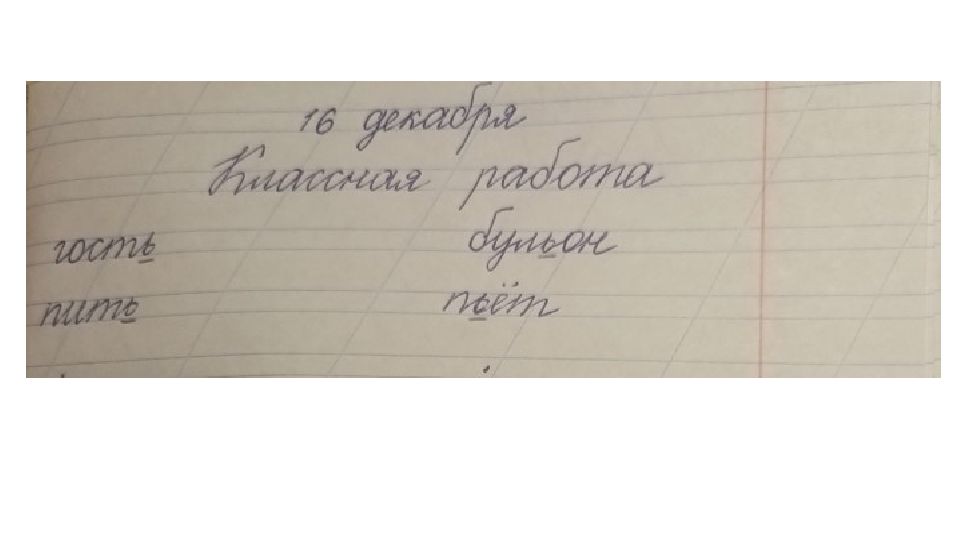 16 декабря
Классная работа
гость бульон
пить пьёт